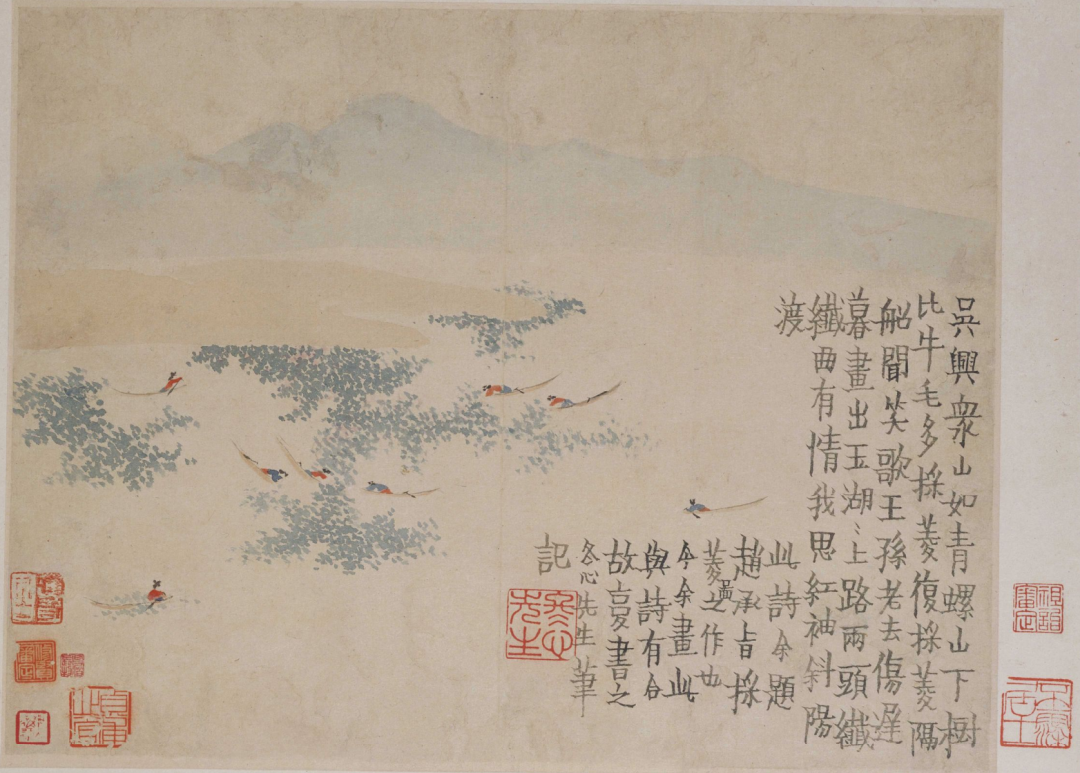 吳興衆山如青螺山下樹
比牛毛多採菱復採菱隔
船聞笑歌王孫老去傷遲
暮畫出玉湖〻上路兩頭纖
纖曲有情我思紅袖斜陽
渡
此詩余題
趙承旨採
菱啚之作也
今余畫此
與詩有合
故复書之
冬心先生筆
記
冬心先生
祖詒審定